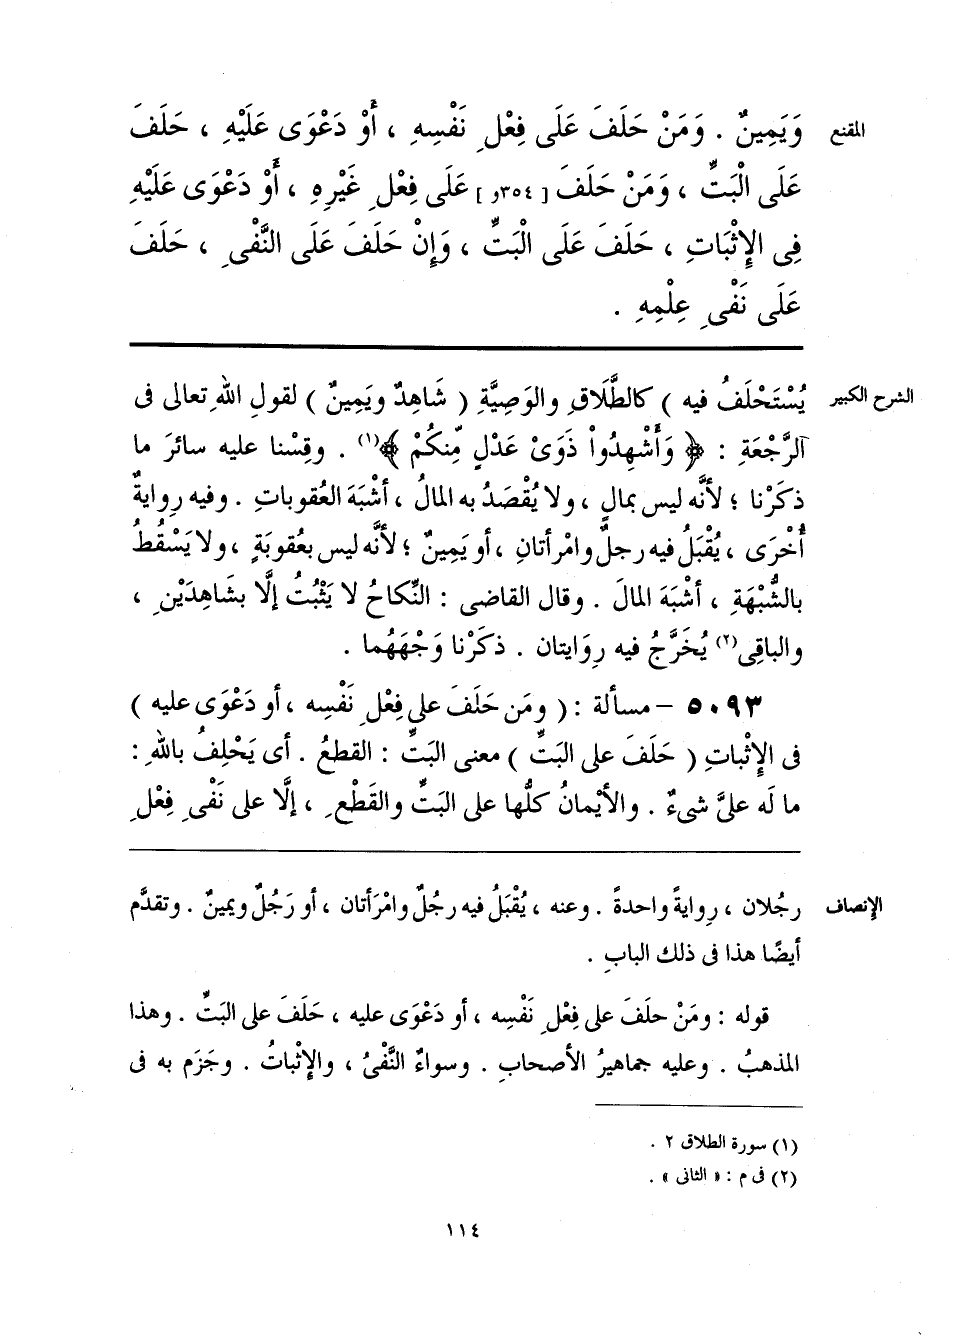 المقنع وَيَمِينٌ . وَمَنْ حَلَفَ عَلَى فِعْلِ نَفْسِهِ ، أَوْ دَعْوَى عَلَيْهِ ، حَلَفَ
عَلَى الْبَتِّ ، وَمَنْ حَلَفَ [ ٣٥٤و ] عَلَى فِعْلِ غَيْرِهِ ، أَوْ دَعْوَى عَلَيْهِ
فِى الإِثْبَاتِ ، حَلَفَ عَلَى الْبَتِّ ، وَإِنْ حَلَفَ عَلَى النَّفْىِ ، حَلَفَ
عَلَى نَفْىِ عِلْمِهِ .
الشرح الكبير يُسْتَحْلَفُ فيه ) كالطَّلَاقِ والوَصِيَّةِ ( شَاهِدٌ ويَمِينٌ ) لقولِ اللهِ تعالى فى
الرَّجْعَةِ : ﴿ وَأَشْهِدُواْ ذَوَىْ عَدْلٍ مِّنكُمْ ﴾(١) . وقِسْنا عليه سائرَ ما
ذكَرْنا ؛ لأنَّه ليس بمالٍ ، ولا يُقْصَدُ به المالُ ، أشْبَهَ العُقوباتِ . وفيه رِوايةٌ
أُخْرَى ، يُقْبَلُ فيه رجلٌ وامْرأتانِ ، أو يَمِينٌ ؛ لأنَّه ليس بعُقوبَةٍ ، ولا يَسْقُطُ
بالشُّبْهَةِ ، أشْبَهَ المالَ . وقال القاضى : النِّكاحُ لا يَثْبُتُ إلَّا بشَاهِدَيْنِ ،
والباقِى(٢) يُخَرَّجُ فيه رِوَايتان . ذكَرْنا وَجْهَهُما .
٥٠٩٣ – مسألة : ( ومَن حَلَفَ على فِعْلِ نَفْسِه ، أو دَعْوَى عليه )
فى الإِثْباتِ ( حَلَفَ على البَتِّ ) معنى البَتِّ : القطعُ . أى يَحْلِفُ باللهِ :
ما لَه علىَّ شىءٌ . والأيْمانُ كلُّها على البَتِّ والقَطْعِ ، إلَّا على نَفْىِ فِعْلِ
الإنصاف رجُلان ، رِوايةً واحدةً . وعنه ، يُقْبَلُ فيه رجُلٌ وامْرَأتان ، أو رَجُلٌ ويمينٌ . وتقدَّم
أيضًا هذا فى ذلك البابِ .
قوله : ومَنْ حلَفَ على فِعْلِ نَفْسِه ، أو دَعْوَى عليه ، حَلَفَ على البَتِّ . وهذا
المذهبُ . وعليه جماهيرُ الأصحابِ . وسواءٌ النَّفْىُ ، والإِثْباتُ . وجَزَم به فى
(١) سورة الطلاق ٢ .
(٢) فى م : « الثانى » .
١١٤